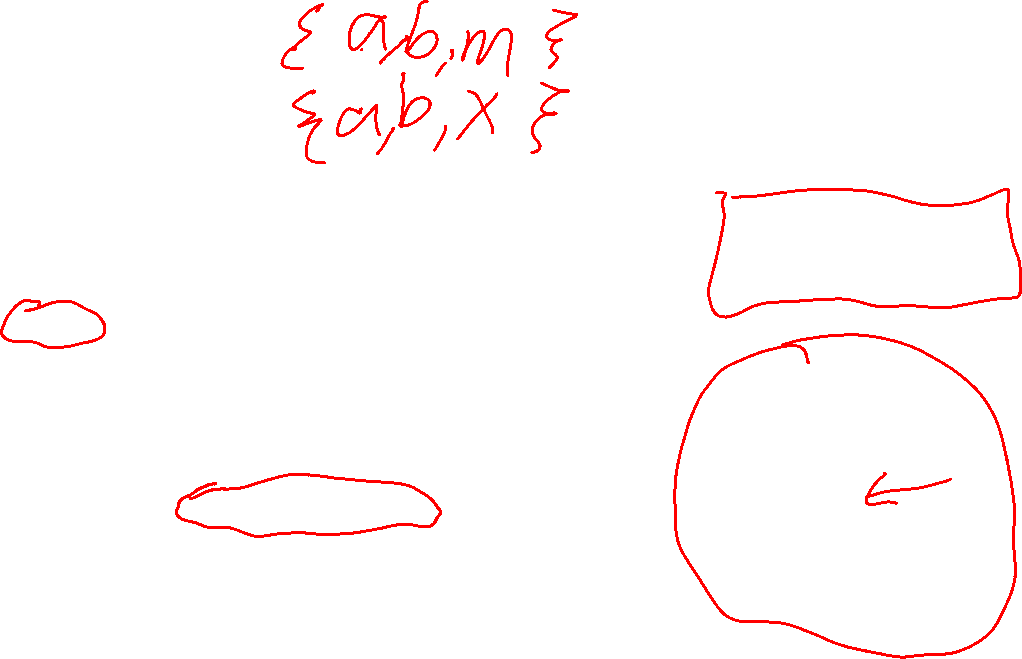 {a,b,m}
{a,b,x}